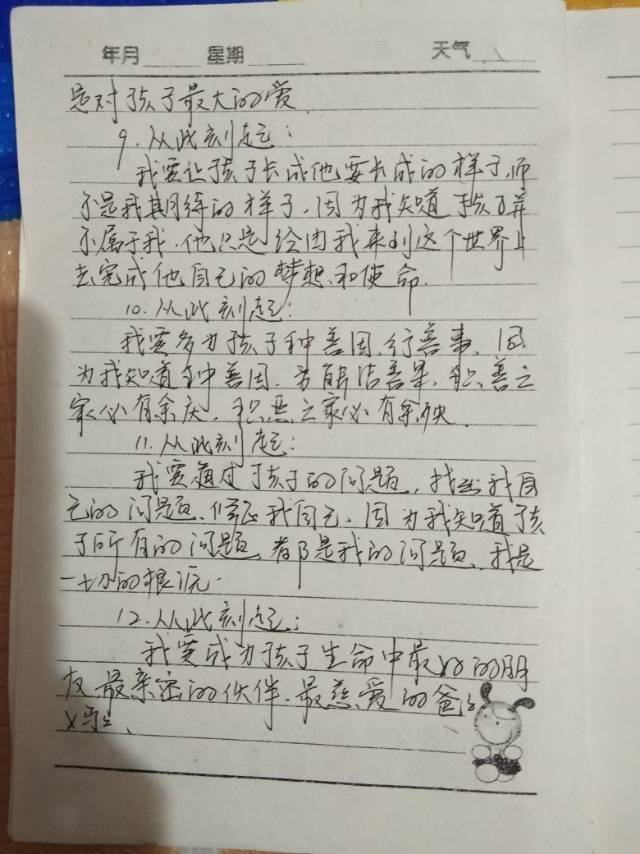 年月 星期 天气
是对孩子最大的爱
9.从此刻起:
我要让孩子长成他要长成的样子,而
不是我期待的样子,因为我知道孩子并
不属于我,他只是经由我来到这个世界上
去完成他自己的梦想和使命.
10.从此刻起:
我要多为孩子种善因、行善事,因
为我知道种善因,方能结善果,积善之
家必有余庆,积恶之家必有余殃.
11.从此刻起:
我要通过孩子的问题,找出我自
己的问题,修正我自己,因为我知道孩
子所有的问题,都是我的问题,我是
一切的根源.
12.从此刻起:
我要成为孩子生命中最好的朋
友最亲密的伙伴,最慈爱的爸